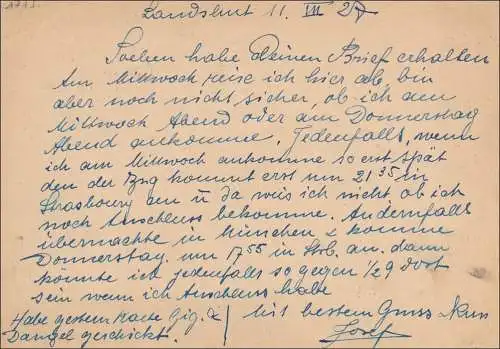 Landshut 11. III 27
Soeben habe Deinen Brief erhalten
Am Mittwoch reise ich hier ab bin
aber noch nicht sicher, ob ich am
Mittwoch Abend oder am Donnerstag
Abend ankomme. Jedenfalls, wenn
ich am Mittwoch ankomme so erst spät
den der Zug kommt erst um 21 35 in
Strasbourg an u da weis ich nicht ob ich
noch Anschluss bekomme. Andernfalls
übernachte in München & komme
Donnerstag um 17 55 in Stb. an. dann
könnte ich jedenfalls so gegen 1/2 9 dort
sein wenn ich Anschluss habe
Habe gestern Karte Zig. &
geschickt.
Mit bestem Gruss
Josef